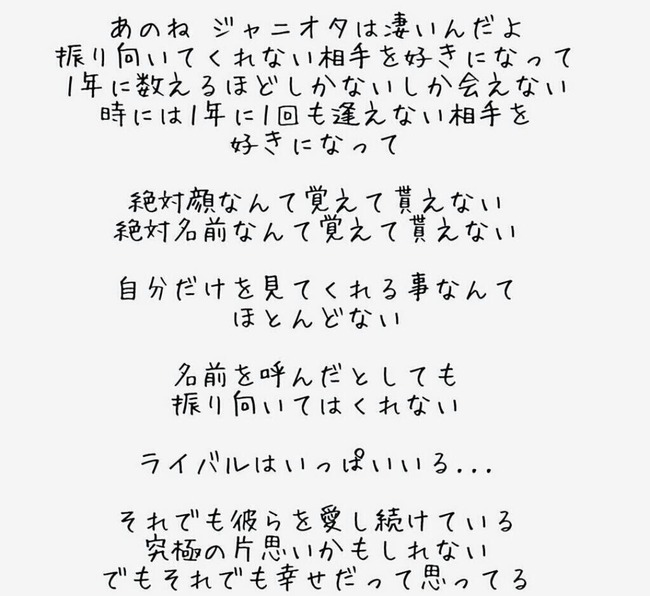 あのね ジャニオタは凄いんだよ
振り向いてくれない相手を好きになって
1年に数えるほどしかないしか会えない
時には1年に1回も逢えない相手を
好きになって
絶対顔なんて覚えて貰えない
絶対名前なんて覚えて貰えない
自分だけを見てくれる事なんて
ほとんどない
名前を呼んだとしても
振り向いてはくれない
ライバルはいっぱいいる...
それでも彼らを愛し続けている
究極の片思いかもしれない
でもそれでも幸せだって思ってる